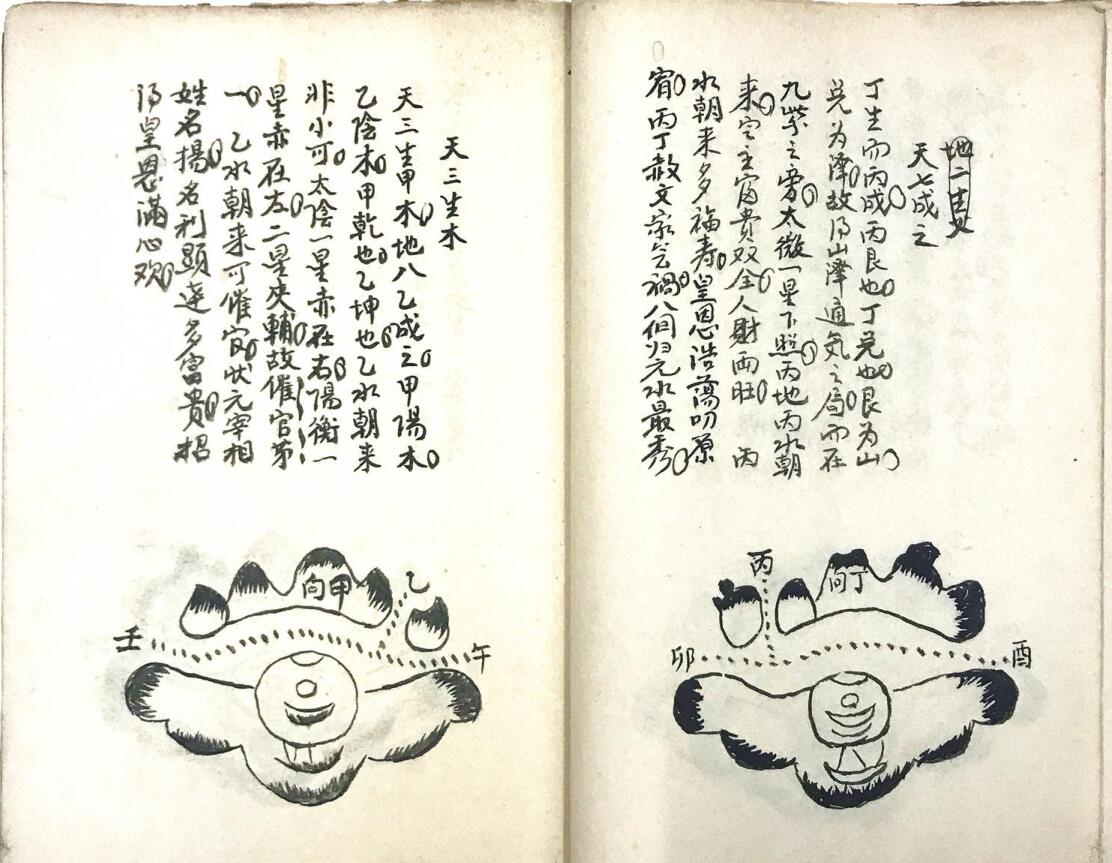 地二生火
天七成之
丁生而丙成丙艮也丁兑也艮为山
兑为泽故乃山泽通气之局而在
九紫之旁太微一星下照丙地丙水朝
来定主富贵双全人财两旺 丙
水朝来多福寿皇恩浩荡叨原
宥丙丁赦文家会祸八個归元水最秀
丙
向丁
卯
酉
天三生木
天三生甲木地八乙成之甲陽木
乙陰木甲乾也乙坤也乙水朝来
非小可太陰一星赤在右陽衡一
星赤在左二星夾輔故催官苐
一乙水朝来可催官状元宰相
姓名揚名利顕达多富貴招
乃皇恩滿心欢
向甲
乙
壬
午